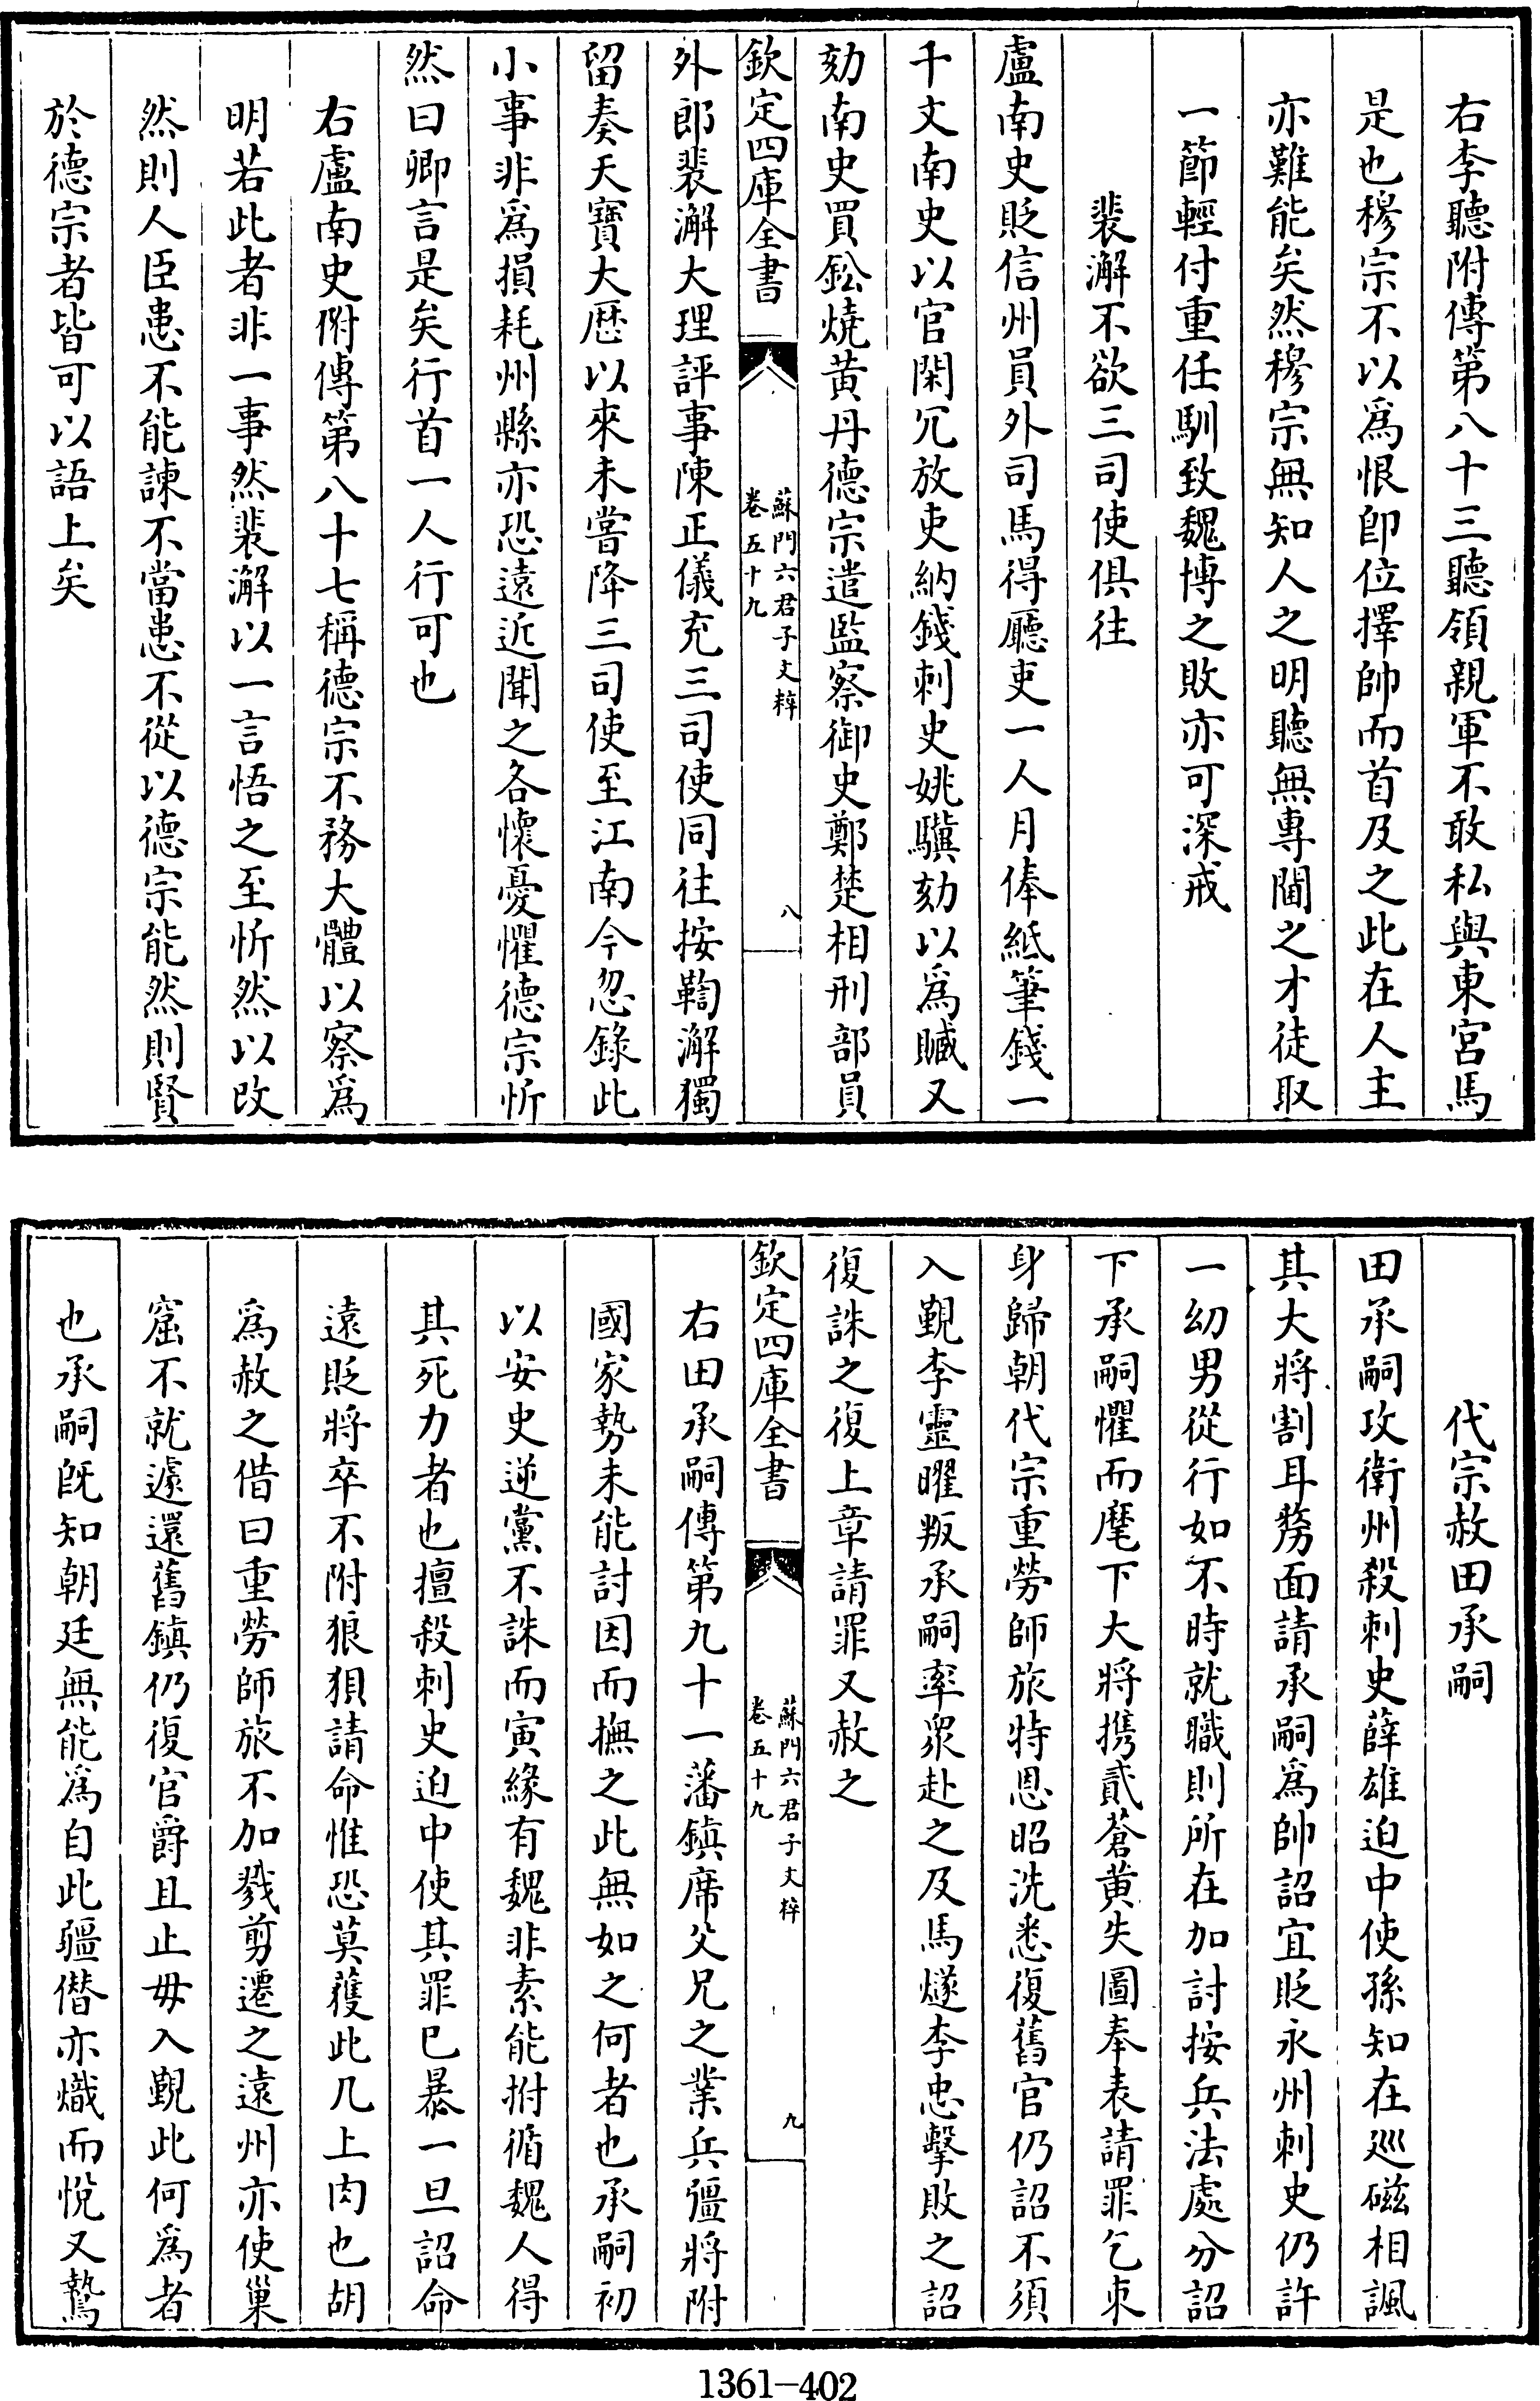 右李聽附傳第八十三聽領親軍不敢私與東宮馬
是也穆宗不以爲恨卽位擇帥而首及之此在人主
亦難能矣然穆宗無知人之明聽無專閫之才徒取
一節輕付重任馴致魏博之敗亦可深戒
裴澥不欲三司使俱往
盧南史貶信州員外司馬得廳吏一人月俸紙筆錢一
千文南史以官閑冗放吏納錢刺史姚驥劾以爲贓又
劾南史買鉛燒黄丹德宗遣監察御史鄭楚相刑部員
欽定四庫全書
蘇門六君子文粹
卷五十九
八
外郎裴澥大理評事陳正儀充三司使同往按鞫澥獨
留奏天寶大厯以來未嘗降三司使至江南今忽錄此
小事非爲損耗州縣亦恐遠近聞之各懷憂懼德宗忻
然曰卿言是矣行首一人行可也
右盧南史附傳第八十七稱德宗不務大體以察爲
明若此者非一事然裴澥以一言悟之至忻然以改
然則人臣患不能諫不當患不從以德宗能然則賢
於德宗者皆可以語上矣
代宗赦田承嗣
田承嗣攻衛州殺刺史薛雄迫中使孫知在廵磁相諷
其大將割耳剺面請承嗣爲帥詔宜貶永州刺史仍許
一幼男從行如不時就職則所在加討按兵法處分詔
下承嗣懼而麾下大將携貳蒼黄失圖奉表請罪乞束
身歸朝代宗重勞師旅特恩昭洗悉復舊官仍詔不須
入覲李靈曜叛承嗣率衆赴之及馬燧李忠擊敗之詔
復誅之復上章請罪又赦之
欽定四庫全書
蘇門六君子文粹
卷五十九
九
右田承嗣傳第九十一藩鎮席父兄之業兵彊將附
國家勢未能討因而撫之此無如之何者也承嗣初
以安史逆黨不誅而寅緣有魏非素能拊循魏人得
其死力者也擅殺刺史迫中使其罪已暴一旦詔命
遠貶將卒不附狼狽請命惟恐莫蒦此几上肉也胡
爲赦之借曰重勞師旅不加戮剪遷之遠州亦使巢
窟不就遽還舊鎮仍復官爵且止毋入覲此何爲者
也承嗣旣知朝廷無能爲自此疆僭亦熾而悅又驁
1361-402